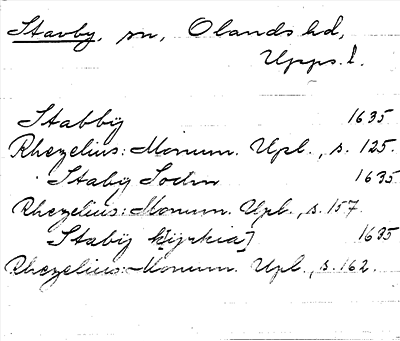 Stavby, sn, Olands hd,
Upps. l.
Stabbÿ 1635
Rhezelius: Monum. Upl., s. 125.
Staby Sochn 1635
Rhezelius: Monum. Upl., s. 157.
Stabÿ k[ÿrkia] 1635
Rhezelius: Monum. Upl., s. 162.